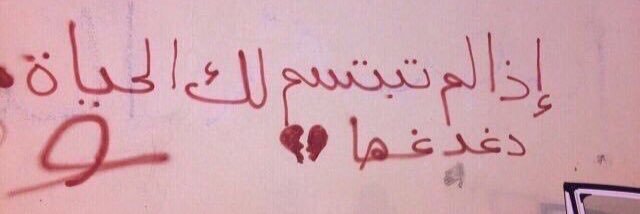 إذا لم تبتسم لك الحياة
دغدغها 💔